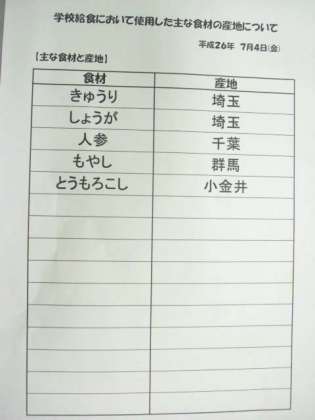 学校給食において使用した主な食材の産地について
平成26年 7月4日(金)
【主な食材と産地】
食材 産地
きゅうり 埼玉
しょうが 埼玉
人参 千葉
もやし 群馬
とうもろこし 小金井